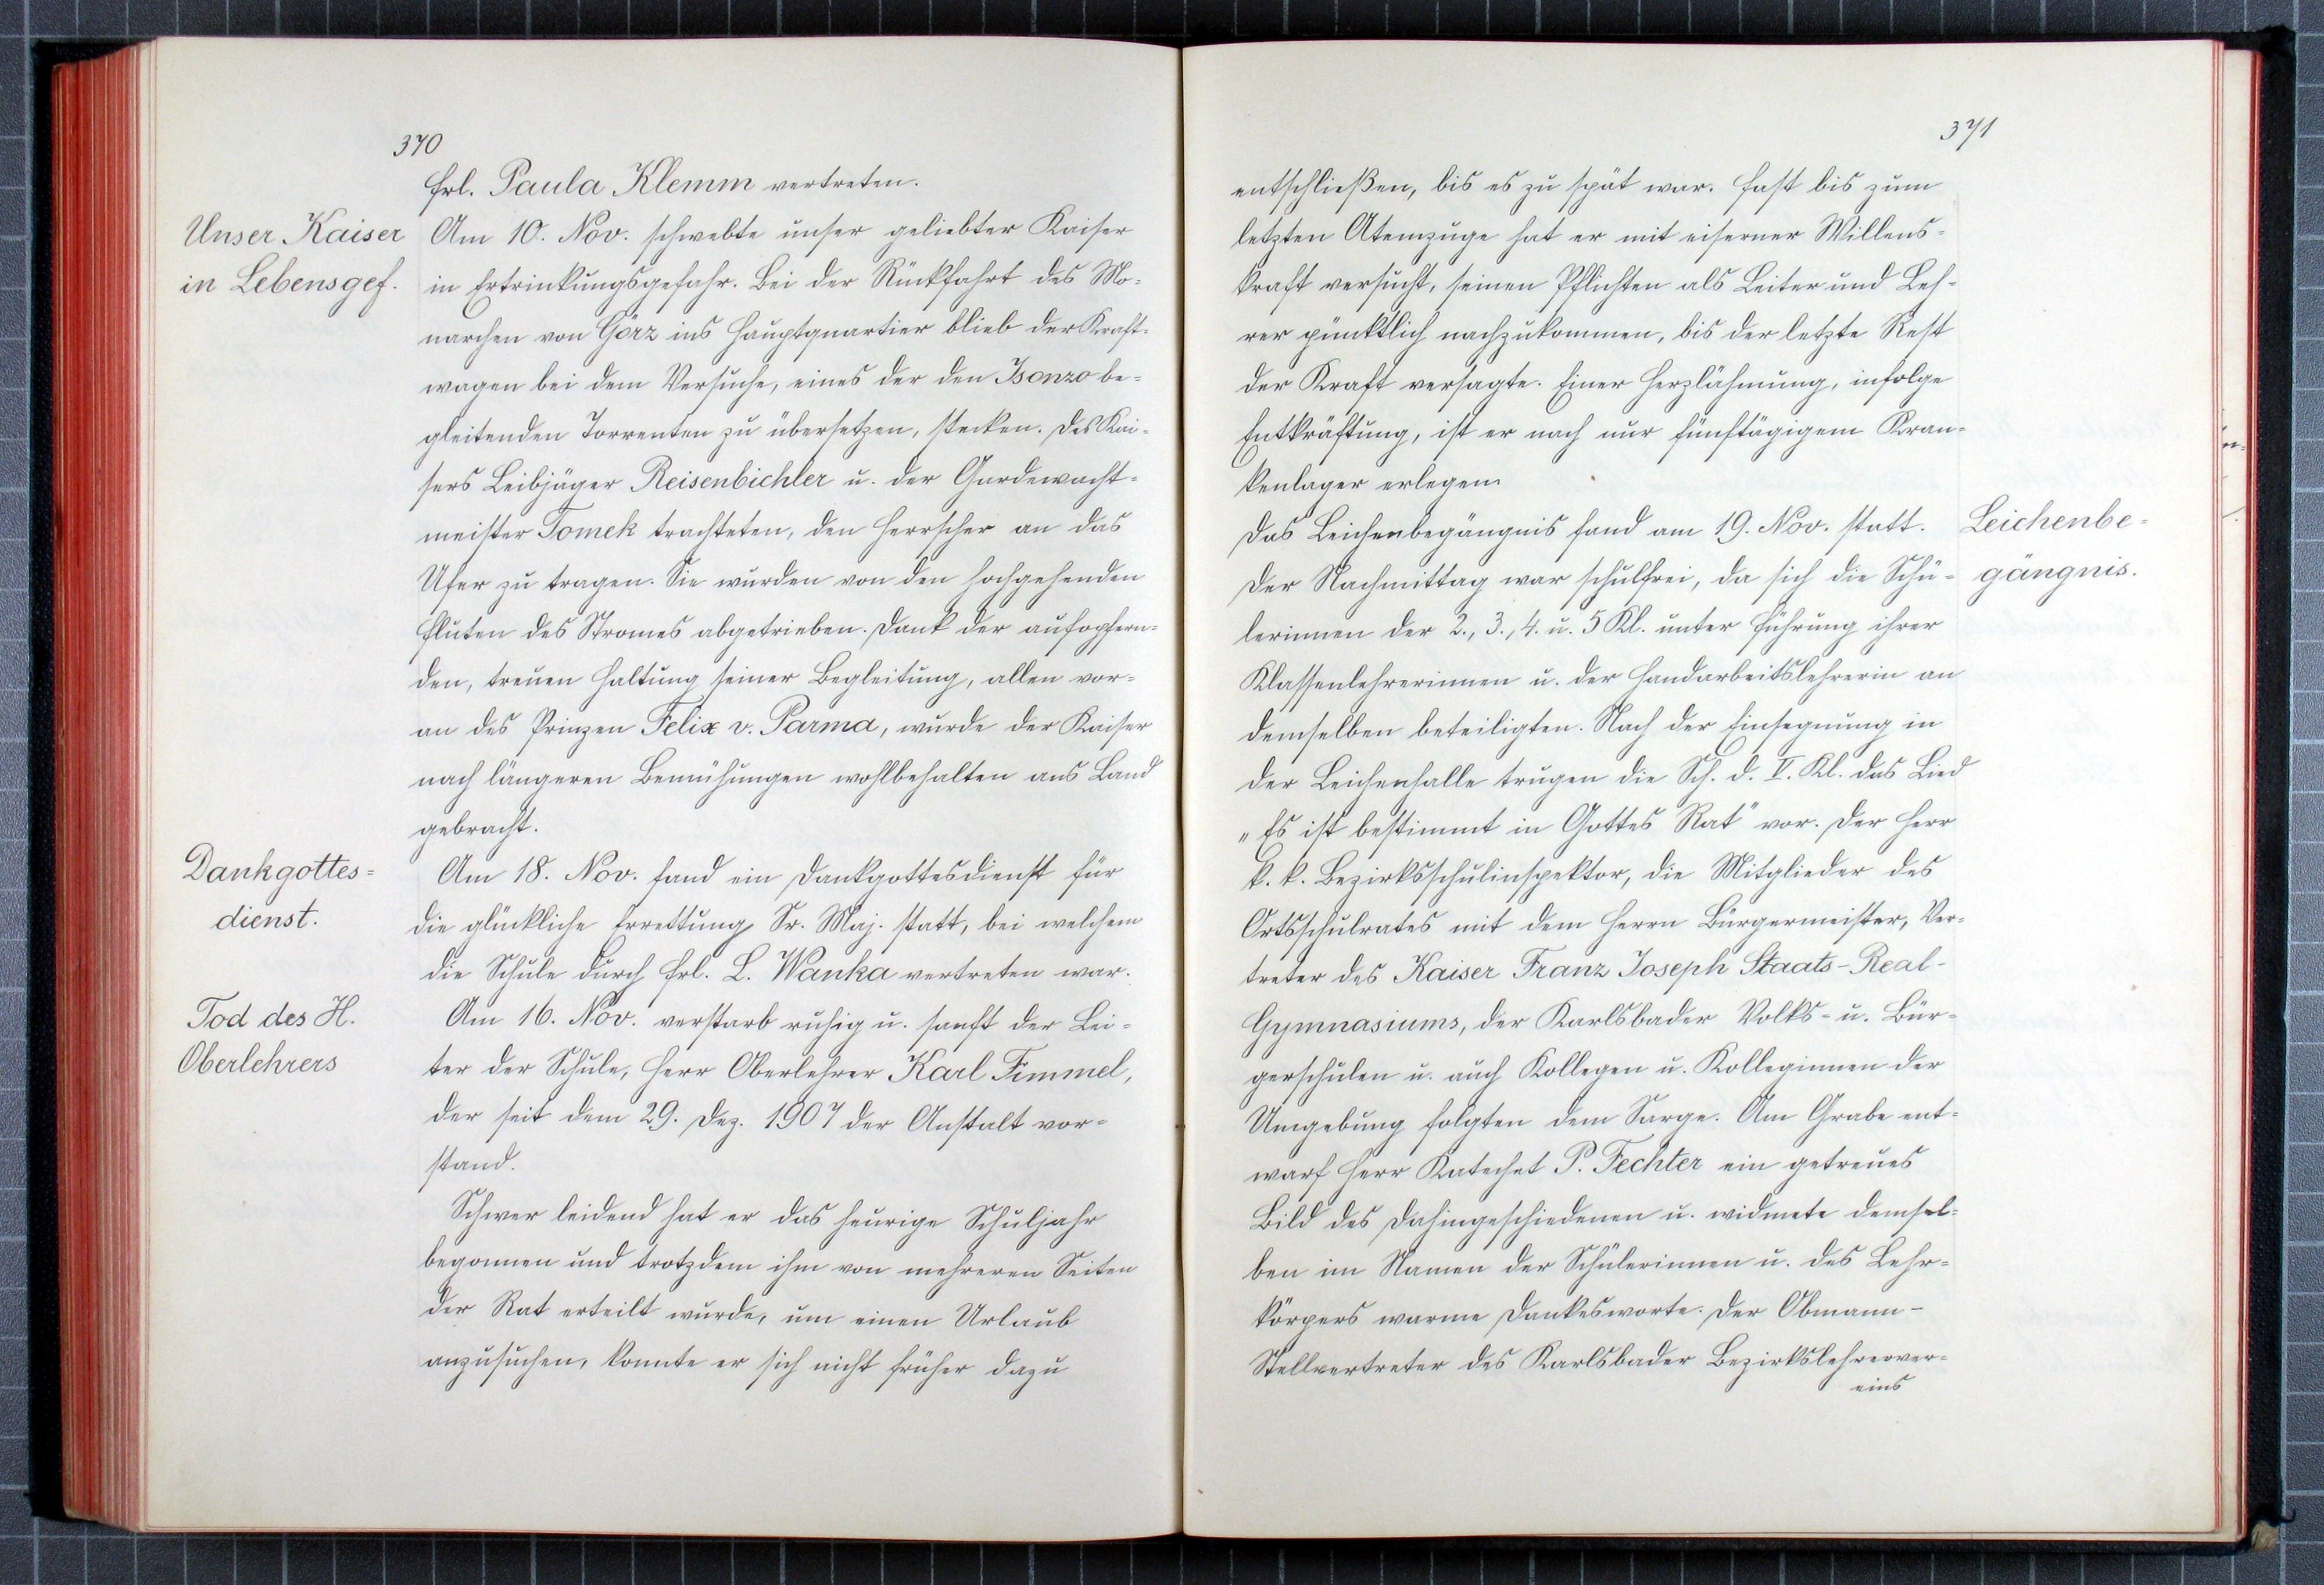 370
Frl. Paula Klemm vertreten.
Unser Kaiser
in Lebensgef.
Am 10. Nov. schwebte unser geliebter Kaiser
in Ertrinkungsgefahr. Bei der Rückfahrt des Mo-
narchen von Görz ins Hauptquartier blieb der Kraft-
wagen bei dem Versuche, eines der den Isonzo be-
gleitenden Torrenten zu übersetzen, stecken. Des Kai-
sers Leibjäger Reisenbichler u. der Gardewacht-
meister Tomek trachteten, den Herrscher an das
Ufer zu tragen. Sie wurden von den hochgehenden
Fluten des Stromes abgetrieben. Dank der aufopfern-
den, treuen Haltung seiner Begleitung, allen vor-
an des Prinzen Felix v. Parma, wurde der Kaiser
nach längeren Bemühungen wohlbehalten ans Land
gebracht.
Dankgottes-
dienst.
Am 18. Nov. fand ein Dankgottesdienst für
die glückliche Errettung Sr. Maj. statt, bei welchem
die Schule durch Frl. L. Wanka vertreten war.
Tod des H.
Oberlehrers
Am 16. Nov. verstarb ruhig u. sanft der Lei-
ter der Schule, Herr Oberlehrer Karl Fimmel,
der seit dem 29. Dez. 1907 der Anstalt vor-
stand.
Schwer leidend hat er das heurige Schuljahr
begonnen und trotzdem ihm von mehreren Seiten
der Rat erteilt wurde, um einen Urlaub
anzusuchen, konnte er sich nicht früher dazu
371
entschließen, bis es zu spät war. Fast bis zum
letzten Atemzuge hat er mit eiserner Willens-
kraft versucht, seinen Pflichten als Leiter und Leh-
rer pünktlich nachzukommen, bis der letzte Rest
der Kraft versagte. Einer Herzlähmung, infolge
Entkräftung, ist er nach nur fünftägigem Kran-
kenlager erlegen.
Leichenbe-
gängnis.
Das Leichenbegängnis fand am 19. Nov. statt.
Der Nachmittag war schulfrei, da sich die Schü-
lerinnen der 2., 3., 4. u. 5 Kl. unter Führung ihrer
Klassenlehrerinnen u. der Handarbeitslehrerin an
demselben beteiligten. Nach der Einsegnung in
der Leichenhalle trugen die Sch. d. V. Kl. das Lied
„Es ist bestimmt in Gottes Rat" vor. Der Herr
k. k. Bezirksschulinspektor, die Mitglieder des
Ortsschulrates mit dem Herrn Bürgermeister, Ver-
treter des Kaiser Franz Joseph Staats-Real-
Gymnasiums, der Karlsbader Volks- u. Bür-
gerschulen u. auch Kollegen u. Kolleginnen der
Umgebung folgten dem Sarge. Am Grabe ent-
warf Herr Katechet P. Fechter ein getreues
Bild des Dahingeschiedenen u. widmete demsel-
ben im Namen der Schülerinnen u. des Lehr-
körpers warme Dankesworte. Der Obmann-
Stellvertreter des Karlsbader Bezirkslehrerver-
eins